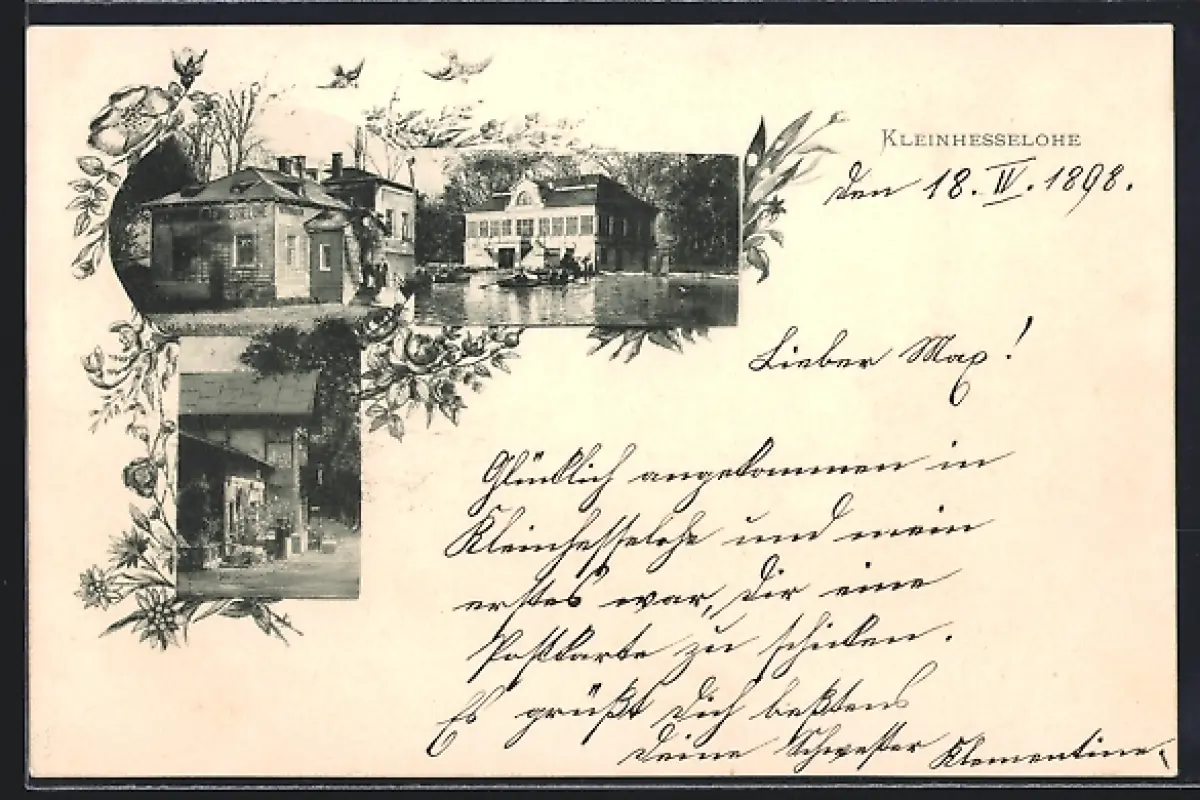 KLEINHESSELOHE
den 18. IV. 1898.
Lieber Max!
Glücklich angekommen in
Kleinhesselohe und mein
erstes war, Dir eine
Postkarte zu schicken.
Es grüßt Dich beßtens
Deine Schwester Klementine.